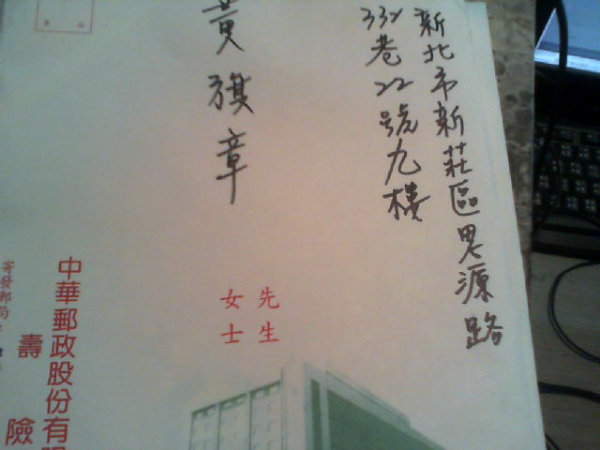 新北市新莊區思源路
332巷22號九樓
黃旗章
先生
女士
中華郵政股份有
壽險
寄發郵局